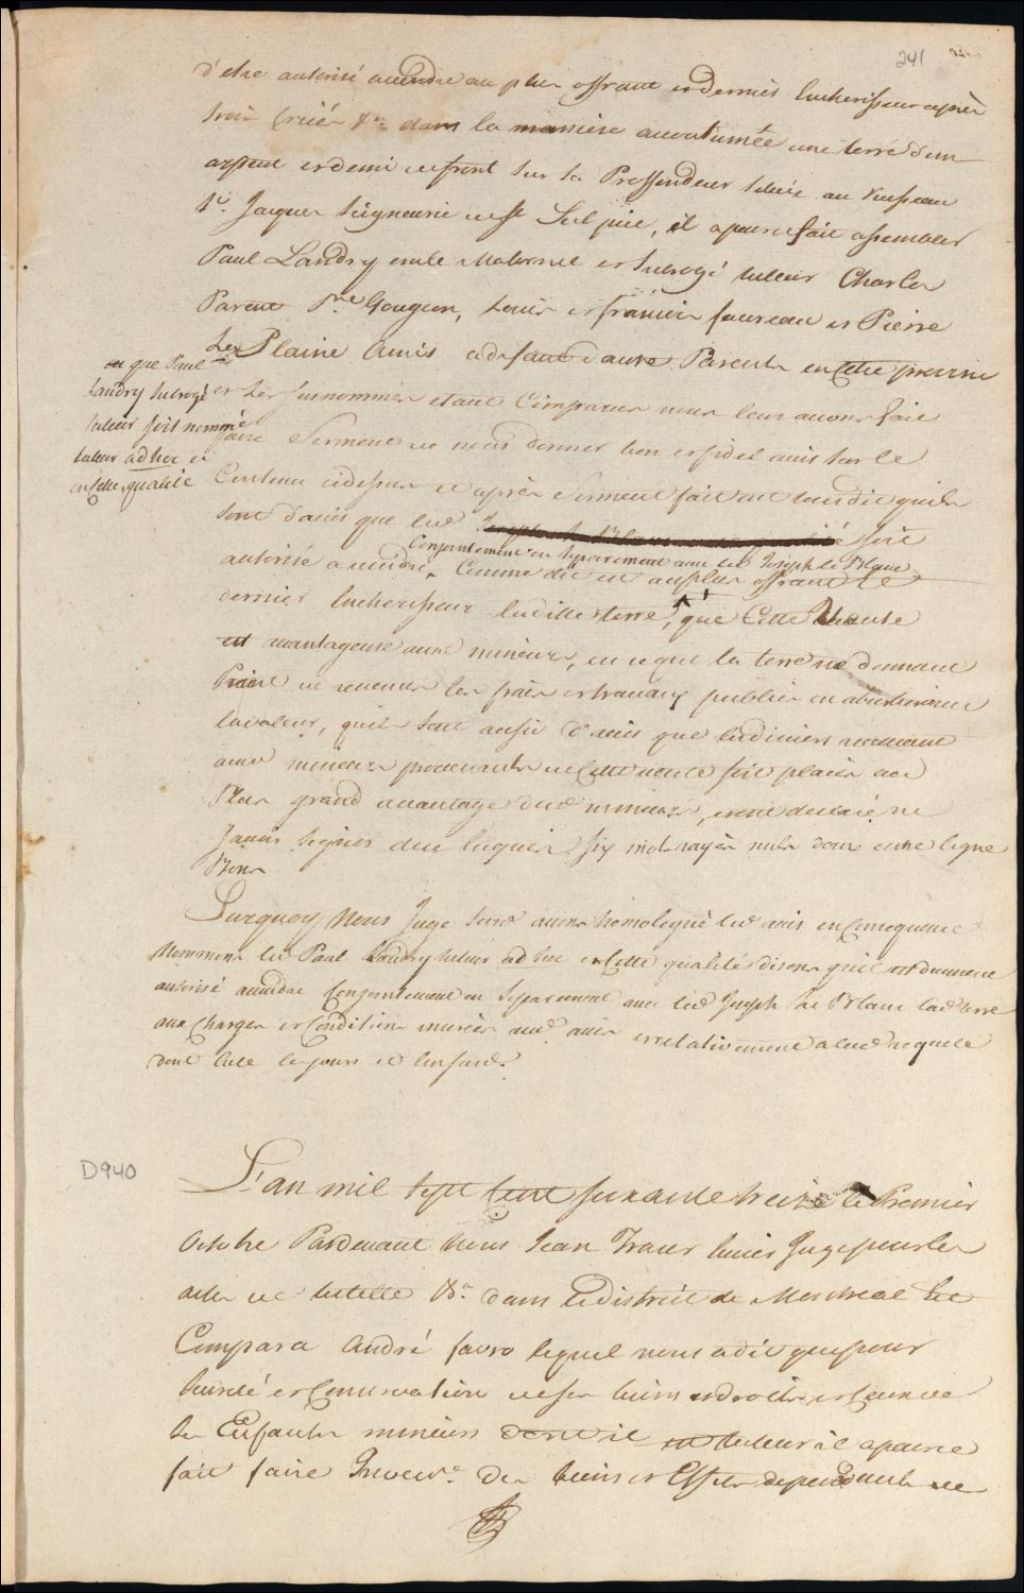 241
d'etre autorisé avendre au plus offrant et dernier Encherisseur après
trois Criées &a. dans la maniere accoutumée une terre d'un
arpent et demi de front sur la Proffondeur située au Ruisseau
St. Jacques Seigneurie de St Sulpice, il a pource fait assembler
Paul Landry oncle Maternel et subrogé tuteur Charles
Parent Pre. Gougeon, Louis et francois faureau et Pierre
La Plaine Amis adefaut d'autre Parents en Cette province
et Les surnommés etant Comparus nous leur avons fait
faire Serment de nous donner bon et fidel avis sur le
Contenu cidessus et après Serment fait ont tous dit quils
sont d'avis que led. soit
ou que Paul
Landry subrogé
tuteur soit nommé
tuteur ad hoc et
en Cette qualité
Conjointement ou separement avec led Joseph Le Blanc
autorisé a vendre Comme dit est au plus offrant et
dernier Encherisseur laditte terre, que Cette Vente
est avantageuse aux mineurs, en ceque la terre ne donnant
Point de revenus les frais et travaux publics en absorberoient
la valeur, quils sont aussi d'avis que les deniers revenant
aux mineurs provenants de Cette vente soit placés au
Plus grand avantage desd mineurs, et ont declaré ne
scavoir signer de ce requis. six mots rayés nuls dans une ligne
Bons
Surquoy Nous Juge susd avons homologué led avis en Consequence
Nommons led Paul Landry tuteur ad hoc en Cette qualité disons quil est dument
autorisé avendre Conjointement ou separement avec led Joseph Le Blanc lad terre
aux Charges et Conditions inserées aud. avis et relativement a lad requete
dont acte les jours et an susd.
D940
L'an mil sept Cent soixante treize le Premier
Octobre Pardevant Nous Jean Fraser Ecuier Juge pour les
actes de tutelle &a. dans le district de Montreal Est
Comparu André favro lequel nous a dit que pour
sureté et Conservation de ses biens et droits et Ceux de
Ses Enfants mineurs dont il est tuteur il a pource
fait faire Invre. des biens et Effets dependants de